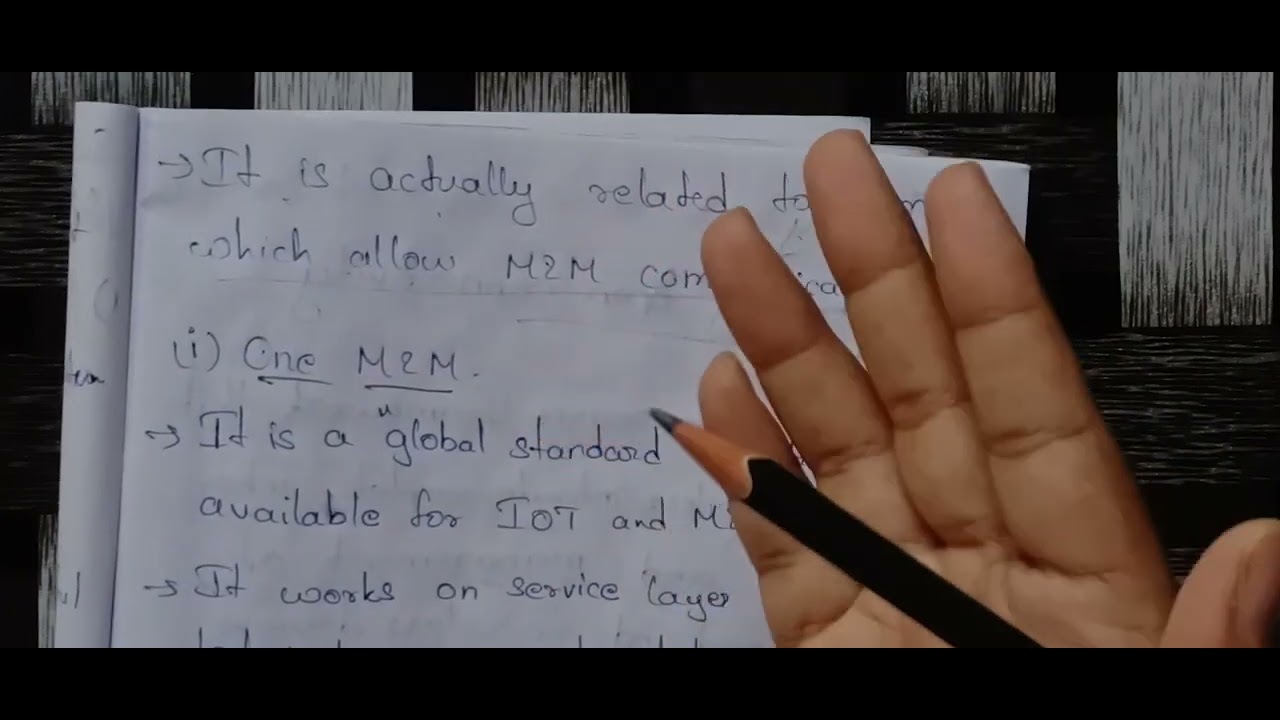 → It is actually related to
which allow M2M
(i) One M2M.
→ It is a " global standard
available for IOT and
→ It works on service layer